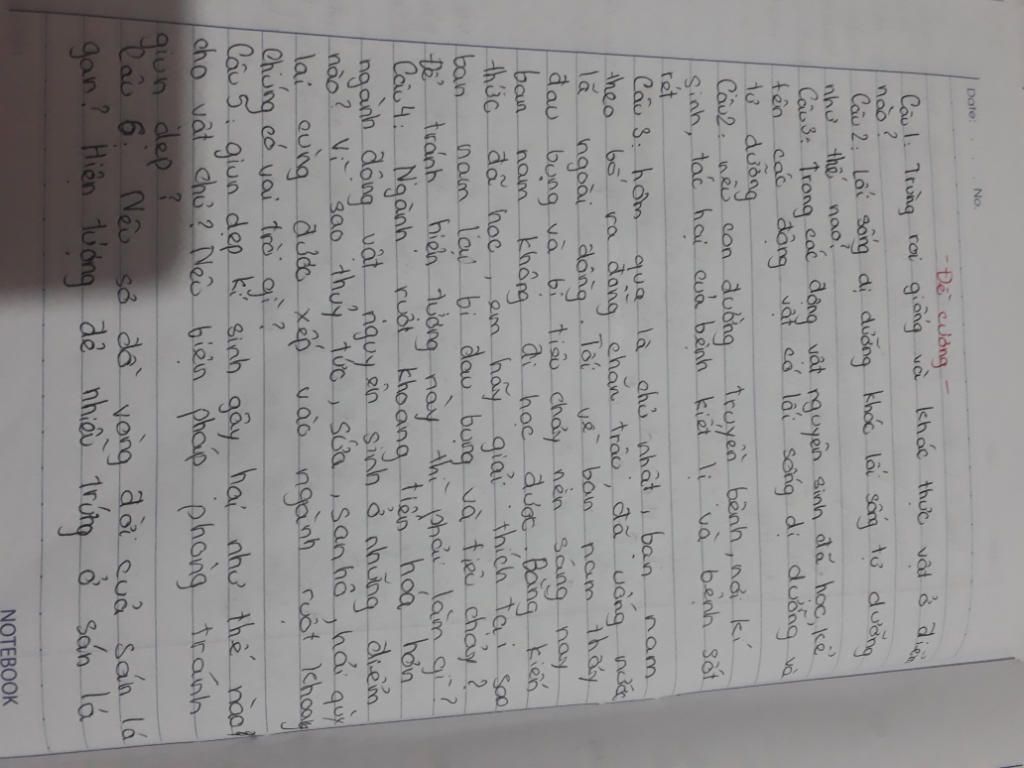 Date: . . . . No.
- Đề cương -
Câu 1: Trùng roi giống và khác thực vật ở điểm
nào?
Câu 2: lối sống dị dưỡng khác lối sống tự dưỡng
như thế nào?
Câu 3: Trong các động vật nguyên sinh đã học, kể
tên các động vật có lối sống dị dưỡng và
tự dưỡng
Câu 2: nêu con đường truyền bệnh, nơi kí
sinh, tác hại của bệnh kiết lị và bệnh sốt
rét
Câu 3: hôm qua là chủ nhật, bạn nam
theo bố ra đồng chăn trâu, đã uống nước
lã ngoài đồng. Tối về bạn nam thấy
đau bụng và bị tiêu chảy nên sáng nay
bạn nam không đi học được. Bằng kiến
thức đã học, em hãy giải thích tại sao
bạn nam lại bị đau bụng và tiêu chảy?
Để tránh hiện tượng này thì phải làm gì?
Câu 4: Ngành ruột khoang tiến hóa hơn
ngành động vật nguyên sinh ở những điểm
nào? Vì sao thủy tức, sứa, san hô, hải quỳ
lại cùng được xếp vào ngành ruột khoang
Chúng có vai trò gì?
Câu 5: giun dẹp kí sinh gây hại như thế nào
cho vật chủ? Nêu biện pháp phòng tránh
giun dẹp?
Câu 6: Nêu sơ đồ vòng đời của sán lá
gan? Hiện tượng đẻ nhiều trứng ở sán lá
NOTEBOOK